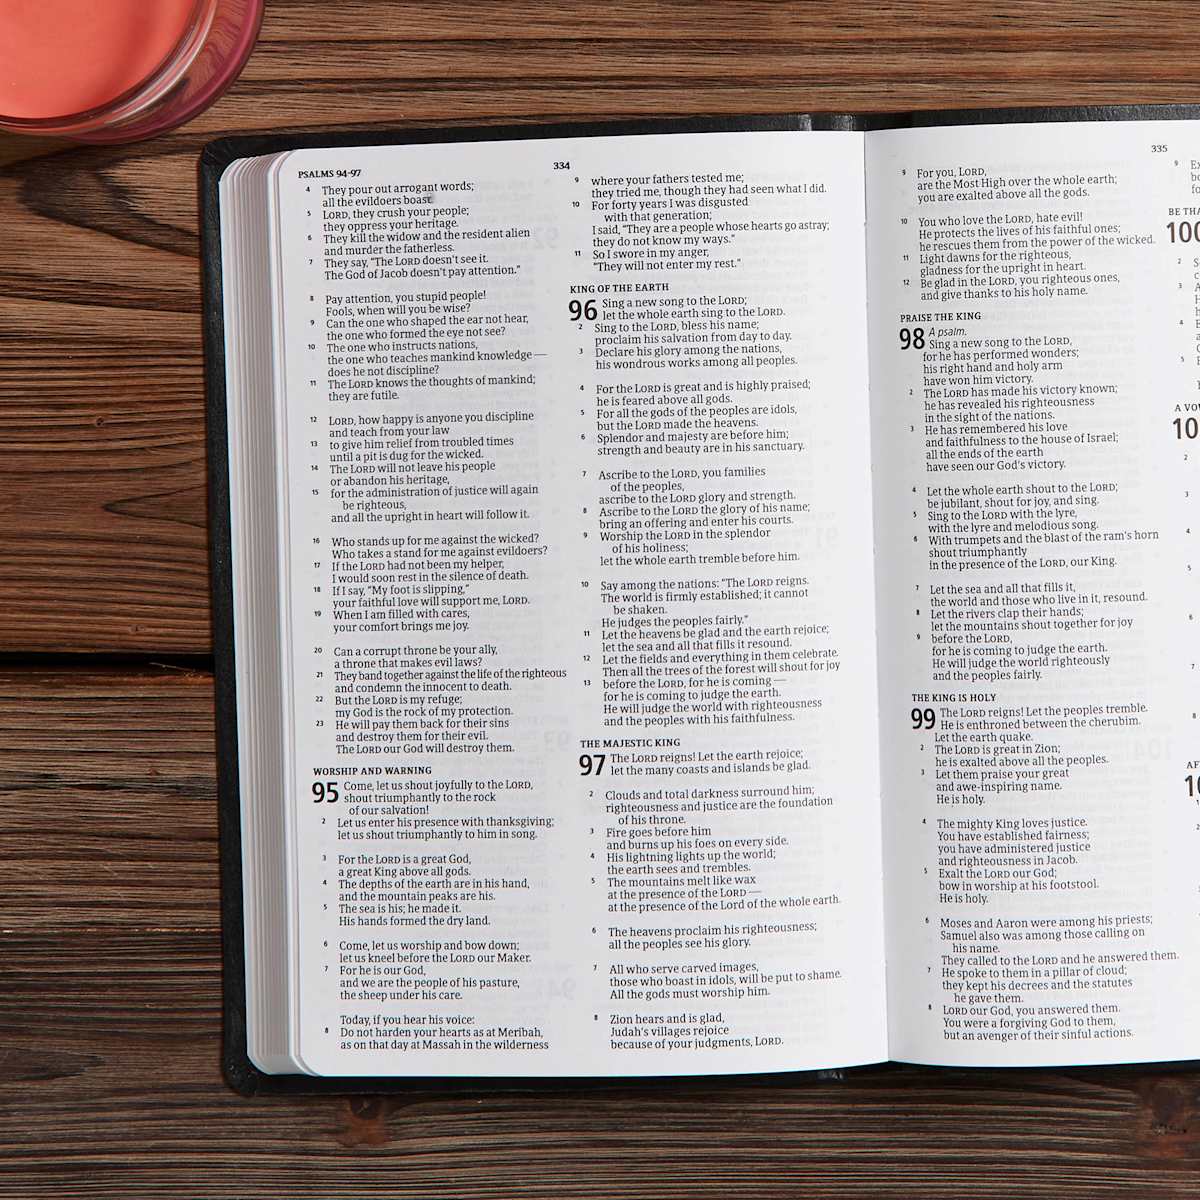 PSALMS 94-97
334
4 They pour out arrogant words;
all the evildoers boast.
5 LORD, they crush your people;
they oppress your heritage.
6 They kill the widow and the resident alien
and murder the fatherless.
7 They say, “The LORD doesn't see it.
The God of Jacob doesn't pay attention.”
8 Pay attention, you stupid people!
Fools, when will you be wise?
9 Can the one who shaped the ear not hear,
the one who formed the eye not see?
10 The one who instructs nations,
the one who teaches mankind knowledge —
does he not discipline?
11 The LORD knows the thoughts of mankind;
they are futile.
12 LORD, how happy is anyone you discipline
and teach from your law
13 to give him relief from troubled times
until a pit is dug for the wicked.
14 The LORD will not leave his people
or abandon his heritage,
15 for the administration of justice will again
be righteous,
and all the upright in heart will follow it.
16 Who stands up for me against the wicked?
Who takes a stand for me against evildoers?
17 If the LORD had not been my helper,
I would soon rest in the silence of death.
18 If I say, “My foot is slipping,”
your faithful love will support me, LORD.
19 When I am filled with cares,
your comfort brings me joy.
20 Can a corrupt throne be your ally,
a throne that makes evil laws?
21 They band together against the life of the righteous
and condemn the innocent to death.
22 But the LORD is my refuge;
my God is the rock of my protection.
23 He will pay them back for their sins
and destroy them for their evil.
The LORD our God will destroy them.
WORSHIP AND WARNING
95 Come, let us shout joyfully to the LORD,
shout triumphantly to the rock
of our salvation!
2 Let us enter his presence with thanksgiving;
let us shout triumphantly to him in song.
3 For the LORD is a great God,
a great King above all gods.
4 The depths of the earth are in his hand,
and the mountain peaks are his.
5 The sea is his; he made it.
His hands formed the dry land.
6 Come, let us worship and bow down;
let us kneel before the LORD our Maker.
7 For he is our God,
and we are the people of his pasture,
the sheep under his care.
Today, if you hear his voice:
8 Do not harden your hearts as at Meribah,
as on that day at Massah in the wilderness
9 where your fathers tested me;
they tried me, though they had seen what I did.
10 For forty years I was disgusted
with that generation;
I said, “They are a people whose hearts go astray;
they do not know my ways.”
11 So I swore in my anger,
“They will not enter my rest.”
KING OF THE EARTH
96 Sing a new song to the LORD;
let the whole earth sing to the LORD.
2 Sing to the LORD, bless his name;
proclaim his salvation from day to day.
3 Declare his glory among the nations,
his wondrous works among all peoples.
4 For the LORD is great and is highly praised;
he is feared above all gods.
5 For all the gods of the peoples are idols,
but the LORD made the heavens.
6 Splendor and majesty are before him;
strength and beauty are in his sanctuary.
7 Ascribe to the LORD, you families
of the peoples,
ascribe to the LORD glory and strength.
8 Ascribe to the LORD the glory of his name;
bring an offering and enter his courts.
9 Worship the LORD in the splendor
of his holiness;
let the whole earth tremble before him.
10 Say among the nations: “The LORD reigns.
The world is firmly established; it cannot
be shaken.
He judges the peoples fairly.”
11 Let the heavens be glad and the earth rejoice;
let the sea and all that fills it resound.
12 Let the fields and everything in them celebrate.
Then all the trees of the forest will shout for joy
13 before the LORD, for he is coming —
for he is coming to judge the earth.
He will judge the world with righteousness
and the peoples with his faithfulness.
THE MAJESTIC KING
97 The LORD reigns! Let the earth rejoice;
let the many coasts and islands be glad.
2 Clouds and total darkness surround him;
righteousness and justice are the foundation
of his throne.
3 Fire goes before him
and burns up his foes on every side.
4 His lightning lights up the world;
the earth sees and trembles.
5 The mountains melt like wax
at the presence of the LORD —
at the presence of the Lord of the whole earth.
6 The heavens proclaim his righteousness;
all the peoples see his glory.
7 All who serve carved images,
those who boast in idols, will be put to shame.
All the gods must worship him.
8 Zion hears and is glad,
Judah's villages rejoice
because of your judgments, LORD.
335
9 For you, LORD,
are the Most High over the whole earth;
you are exalted above all the gods.
10 You who love the LORD, hate evil!
He protects the lives of his faithful ones;
he rescues them from the power of the wicked.
11 Light dawns for the righteous,
gladness for the upright in heart.
12 Be glad in the LORD, you righteous ones,
and give thanks to his holy name.
PRAISE THE KING
98 A psalm.
Sing a new song to the LORD,
for he has performed wonders;
his right hand and holy arm
have won him victory.
2 The LORD has made his victory known;
he has revealed his righteousness
in the sight of the nations.
3 He has remembered his love
and faithfulness to the house of Israel;
all the ends of the earth
have seen our God's victory.
4 Let the whole earth shout to the LORD;
be jubilant, shout for joy, and sing.
5 Sing to the LORD with the lyre,
with the lyre and melodious song.
6 With trumpets and the blast of the ram's horn
shout triumphantly
in the presence of the LORD, our King.
7 Let the sea and all that fills it,
the world and those who live in it, resound.
8 Let the rivers clap their hands;
let the mountains shout together for joy
9 before the LORD,
for he is coming to judge the earth.
He will judge the world righteously
and the peoples fairly.
THE KING IS HOLY
99 The LORD reigns! Let the peoples tremble.
He is enthroned between the cherubim.
Let the earth quake.
2 The LORD is great in Zion;
he is exalted above all the peoples.
3 Let them praise your great
and awe-inspiring name.
He is holy.
4 The mighty King loves justice.
You have established fairness;
you have administered justice
and righteousness in Jacob.
5 Exalt the LORD our God;
bow in worship at his footstool.
He is holy.
6 Moses and Aaron were among his priests;
Samuel also was among those calling on
his name.
They called to the LORD and he answered them.
7 He spoke to them in a pillar of cloud;
they kept his decrees and the statutes
he gave them.
8 LORD our God, you answered them.
You were a forgiving God to them,
but an avenger of their sinful actions.
9
BE
100
2
3
4
5
A
2
3
4
5
6
7
8
2